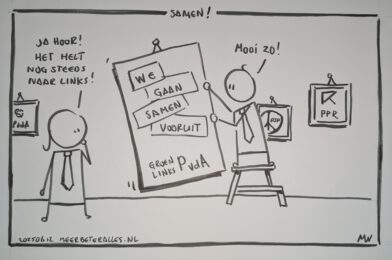 SAMEN!
JA HOOR!
HET HELT
NOG STEEDS
NAAR LINKS!
MOOI ZO!
WE
GAAN
SAMEN
VOORUIT
GROEN
LINKS PvdA
PSP
PPR
20250612 MEERBETERALLES.NL
MW